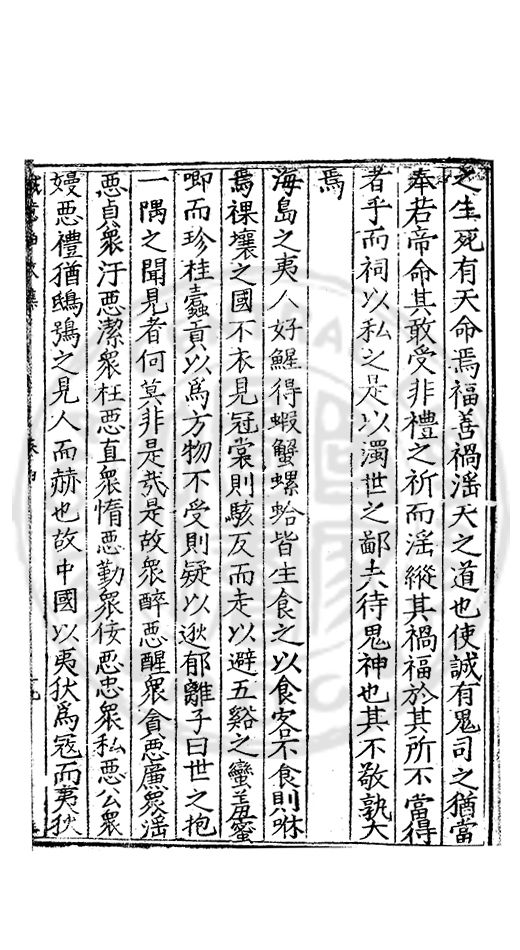 之生死有天命焉福善禍淫天之道也使誠有鬼司之猶當
奉若帝命其敢受非禮之祈而淫縱其禍福於其所不當得
者乎而祠以私之是以濁世之鄙夫待鬼神也其不敬孰大
焉
海島之夷人好鯹得蝦蟹螺蛤皆生食之以食客不食則咻
焉裸壤之國不衣見冠裳則駭反而走以避五谿之蠻羞蜜
唧而珍桂蠹貢以為方物不受則疑以逖郁離子曰世之抱
一隅之聞見者何莫非是哉是故衆醉惡醒衆貪惡廉衆淫
惡貞衆汙惡潔衆枉惡直衆惰惡勤衆佞惡忠衆私惡公衆
嫚惡禮猶鴟鵶之見人而赫也故中國以夷狄為冦而夷狄